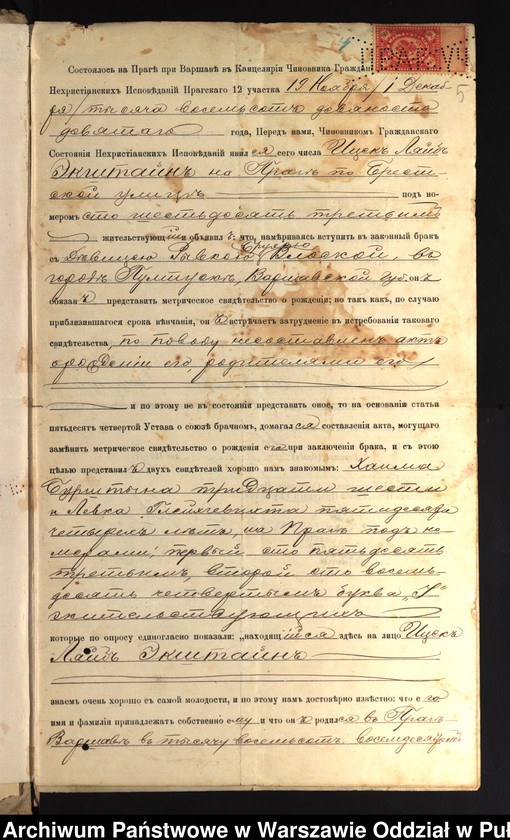 Состоялось на Прагѣ при Варшавѣ въ Канцеляріи Чиновника Граждан
Нехристіанскихъ Исповѣданій Прагскаго 12 участка 19 Ноября / 1 Декаб-
ря / тысяча восемьсотъ девяносто
девятаго года, Передъ нами, Чиновникомъ Гражданскаго
Состоянія Нехристіанскихъ Исповѣданій явился сего числа Ицекъ Лайбъ
Экштайнъ на Прагѣ по Брест-
ской улицѣ подъ но-
меромъ сто шестьдесятъ третьимъ
жительствующій и объявилъ, что, намѣриваясь вступить въ законный бракъ
съ Дѣвицею Рывкою Влоской, въ
городѣ Пултускѣ, Варшавской губ. онъ
обязанъ представить метрическое свидѣтельство о рожденіи; но такъ какъ, по случаю
приблизившагося срока вѣнчанія, онъ встрѣчаетъ затрудненіе въ истребованіи таковаго
свидѣтельства, по поводу несоставленія акта
о рожденіи его, родителями его
и по этому не въ состояніи представить оное, то на основаніи статьи
пятьдесятъ четвертой Устава о союзѣ брачномъ, домагался составленія акта, могущаго
замѣнить метрическое свидѣтельство о рожденіи его при заключеніи брака, и съ этою
цѣлью представилъ двухъ свидѣтелей хорошо намъ знакомымъ: Хаима
Бурштына тридцати шести
и Левка пятидесяти
четырехъ лѣтъ, на Прагѣ подъ но-
мерами: первый сто пятьдесятъ
третьимъ, второй сто восемь-
десятъ четвертымъ буква
жительствующихъ
которые по опросу единогласно показали: „находящійся здѣсь на лицо Ицекъ
Лайбъ Экштайнъ
знаемъ очень хорошо съ самой молодости, и по этому намъ достовѣрно извѣстно: что его
имя и фамилія принадлежатъ собственно ему и что онъ родился въ Прагѣ
Варшавѣ въ тысячу восемьсотъ восемдесятъ
5
Archiwum Państwowe w Warszawie Oddział w Puł